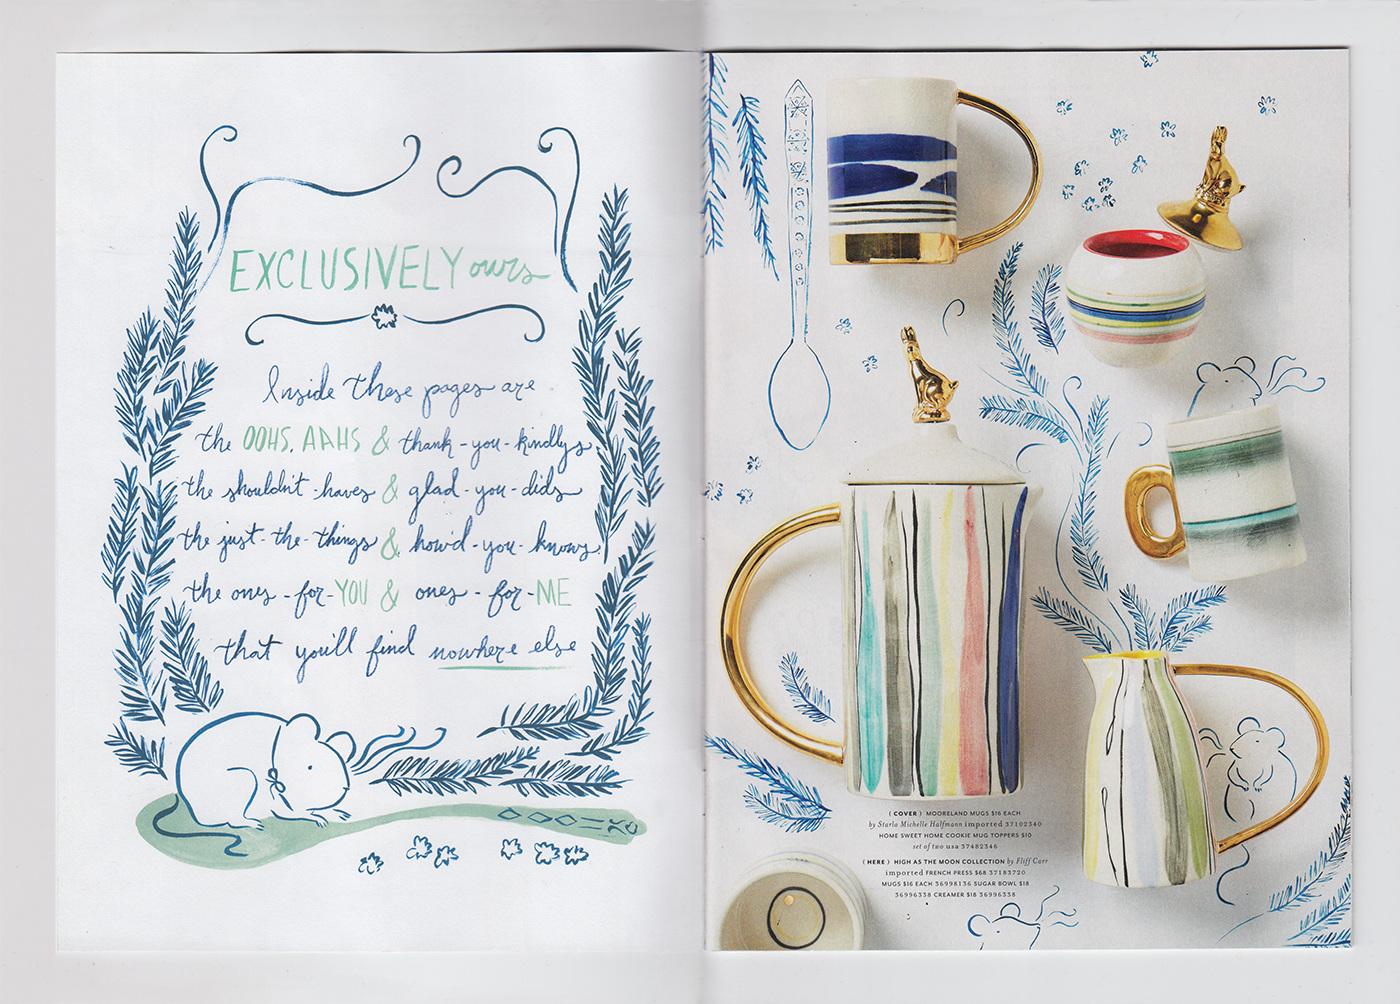 EXCLUSIVELY ours
Inside these pages are
the OOHS, AAHS & thank-you-kindlys
the shouldn't-haves & glad-you-dids
the just-the-things & how'd-you-knows
the ones-for-YOU & ones-for-ME
that you'll find nowhere else
(COVER) MOORELAND MUGS $16 EACH
by Starla Michelle Halfmann imported 37102340
HOME SWEET HOME COOKIE MUG TOPPERS $10
set of two usa 37482346
(HERE) HIGH AS THE MOON COLLECTION by Fliff Carr
imported FRENCH PRESS $68 37183720
MUGS $16 EACH 36998136 SUGAR BOWL $18
36996338 CREAMER $18 36996338